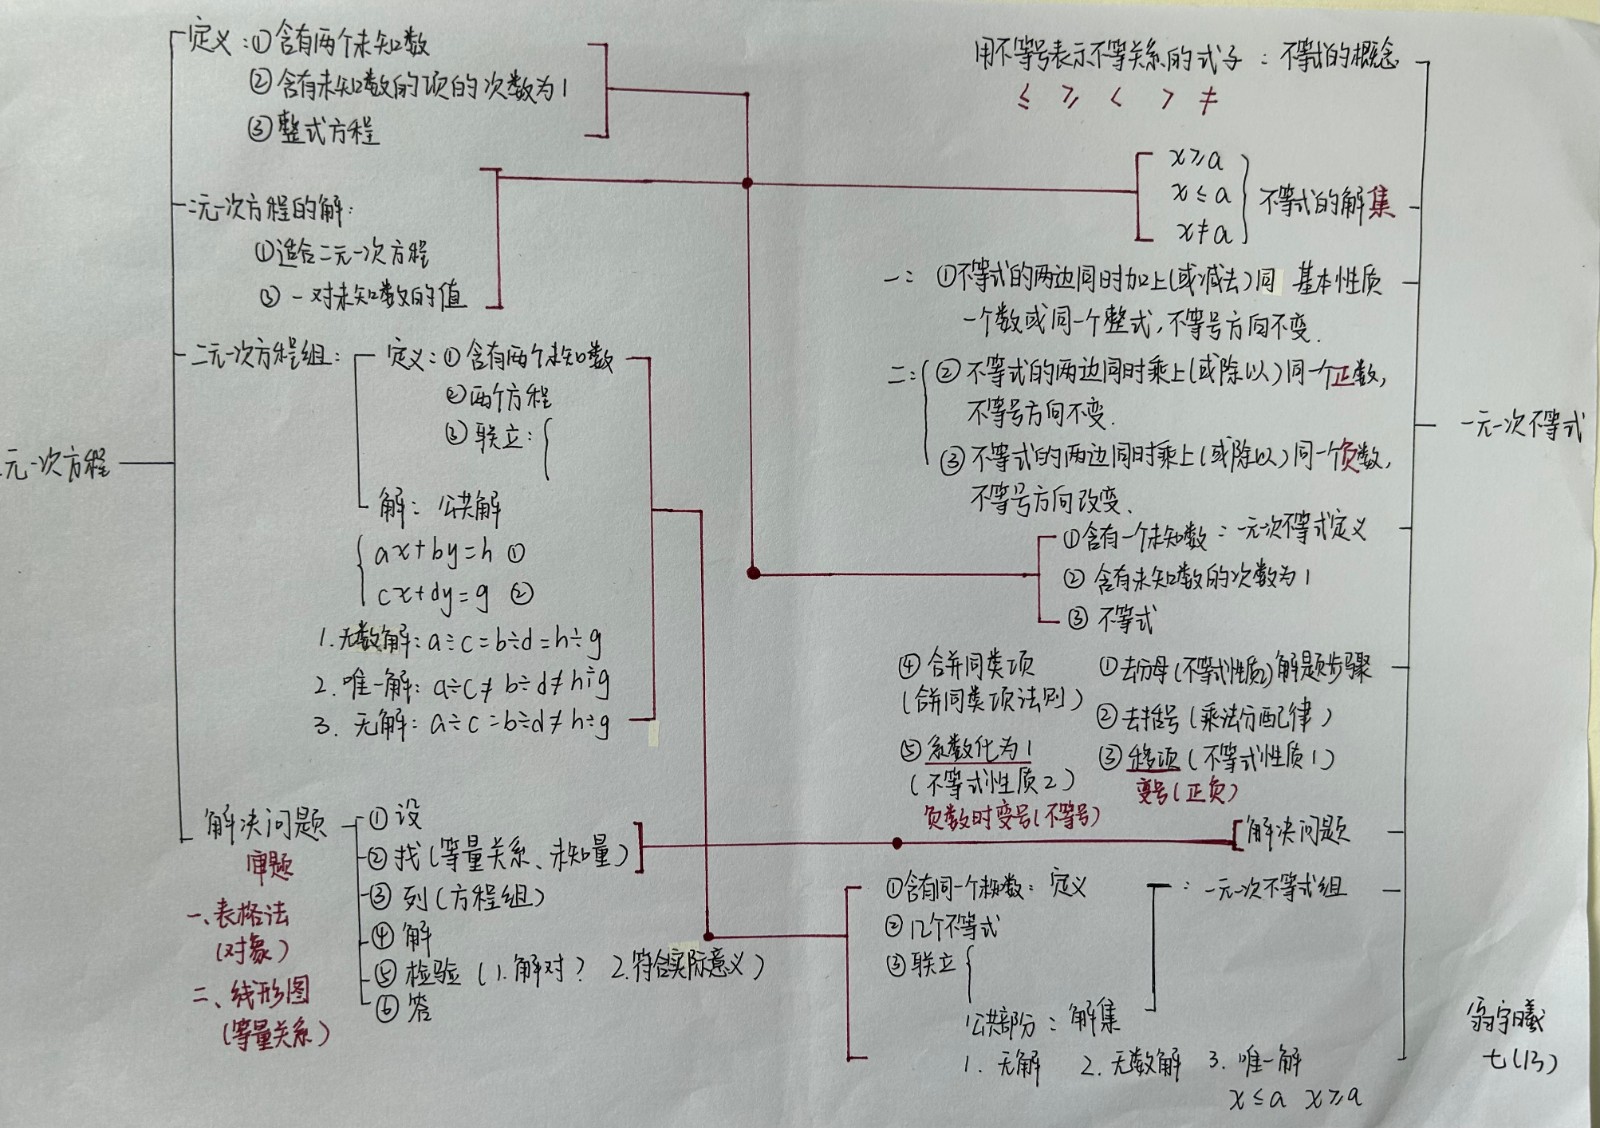 定义:①含有两个未知数
②含有未知数的项的次数为1
③整式方程
二元一次方程的解:
①适合二元一次方程
②一对未知数的值
二元一次方程组:
定义:①含有两个未知数
②两个方程
③联立:{
解:公共解
{ax+by=h ①
cx+dy=g ②
1.无数解:a÷c=b÷d=h÷g
2.唯一解:a÷c≠b÷d≠h÷g
3.无解:a÷c=b÷d≠h÷g
元一次方程
解决问题
审题
一、表格法
(对象)
二、线形图
(等量关系)
①设
②找(等量关系、未知量)
③列(方程组)
④解
⑤检验(1.解对? 2.符合实际意义)
⑥答
用不等号表示不等关系的式子:不等式的概念
≤ ≥ < > ≠
x≥a
x≤a
x≠a
}不等式的解集
一:①不等式的两边同时加上(或减去)同 基本性质
一个数或同一个整式,不等号方向不变.
二:{②不等式的两边同时乘上(或除以)同一个正数,
不等号方向不变.
③不等式的两边同时乘上(或除以)同一个负数,
不等号方向改变.
一元一次不等式
①含有一个未知数:一元一次不等式定义
②含有未知数的次数为1
③不等式
①去分母(不等式性质2)解题步骤
②去括号(乘法分配律)
③移项(不等式性质1)
变号(正负)
④合并同类项
(合并同类项法则)
⑤系数化为1
(不等式性质2)
负数时变号(不等号)
解决问题
①含有同一个未知数:定义 :一元一次不等式组
②几个不等式
③联立{
公共部分:解集
1.无解 2.无数解 3.唯一解
x≤a x≥a
翁宇曦
七(13)